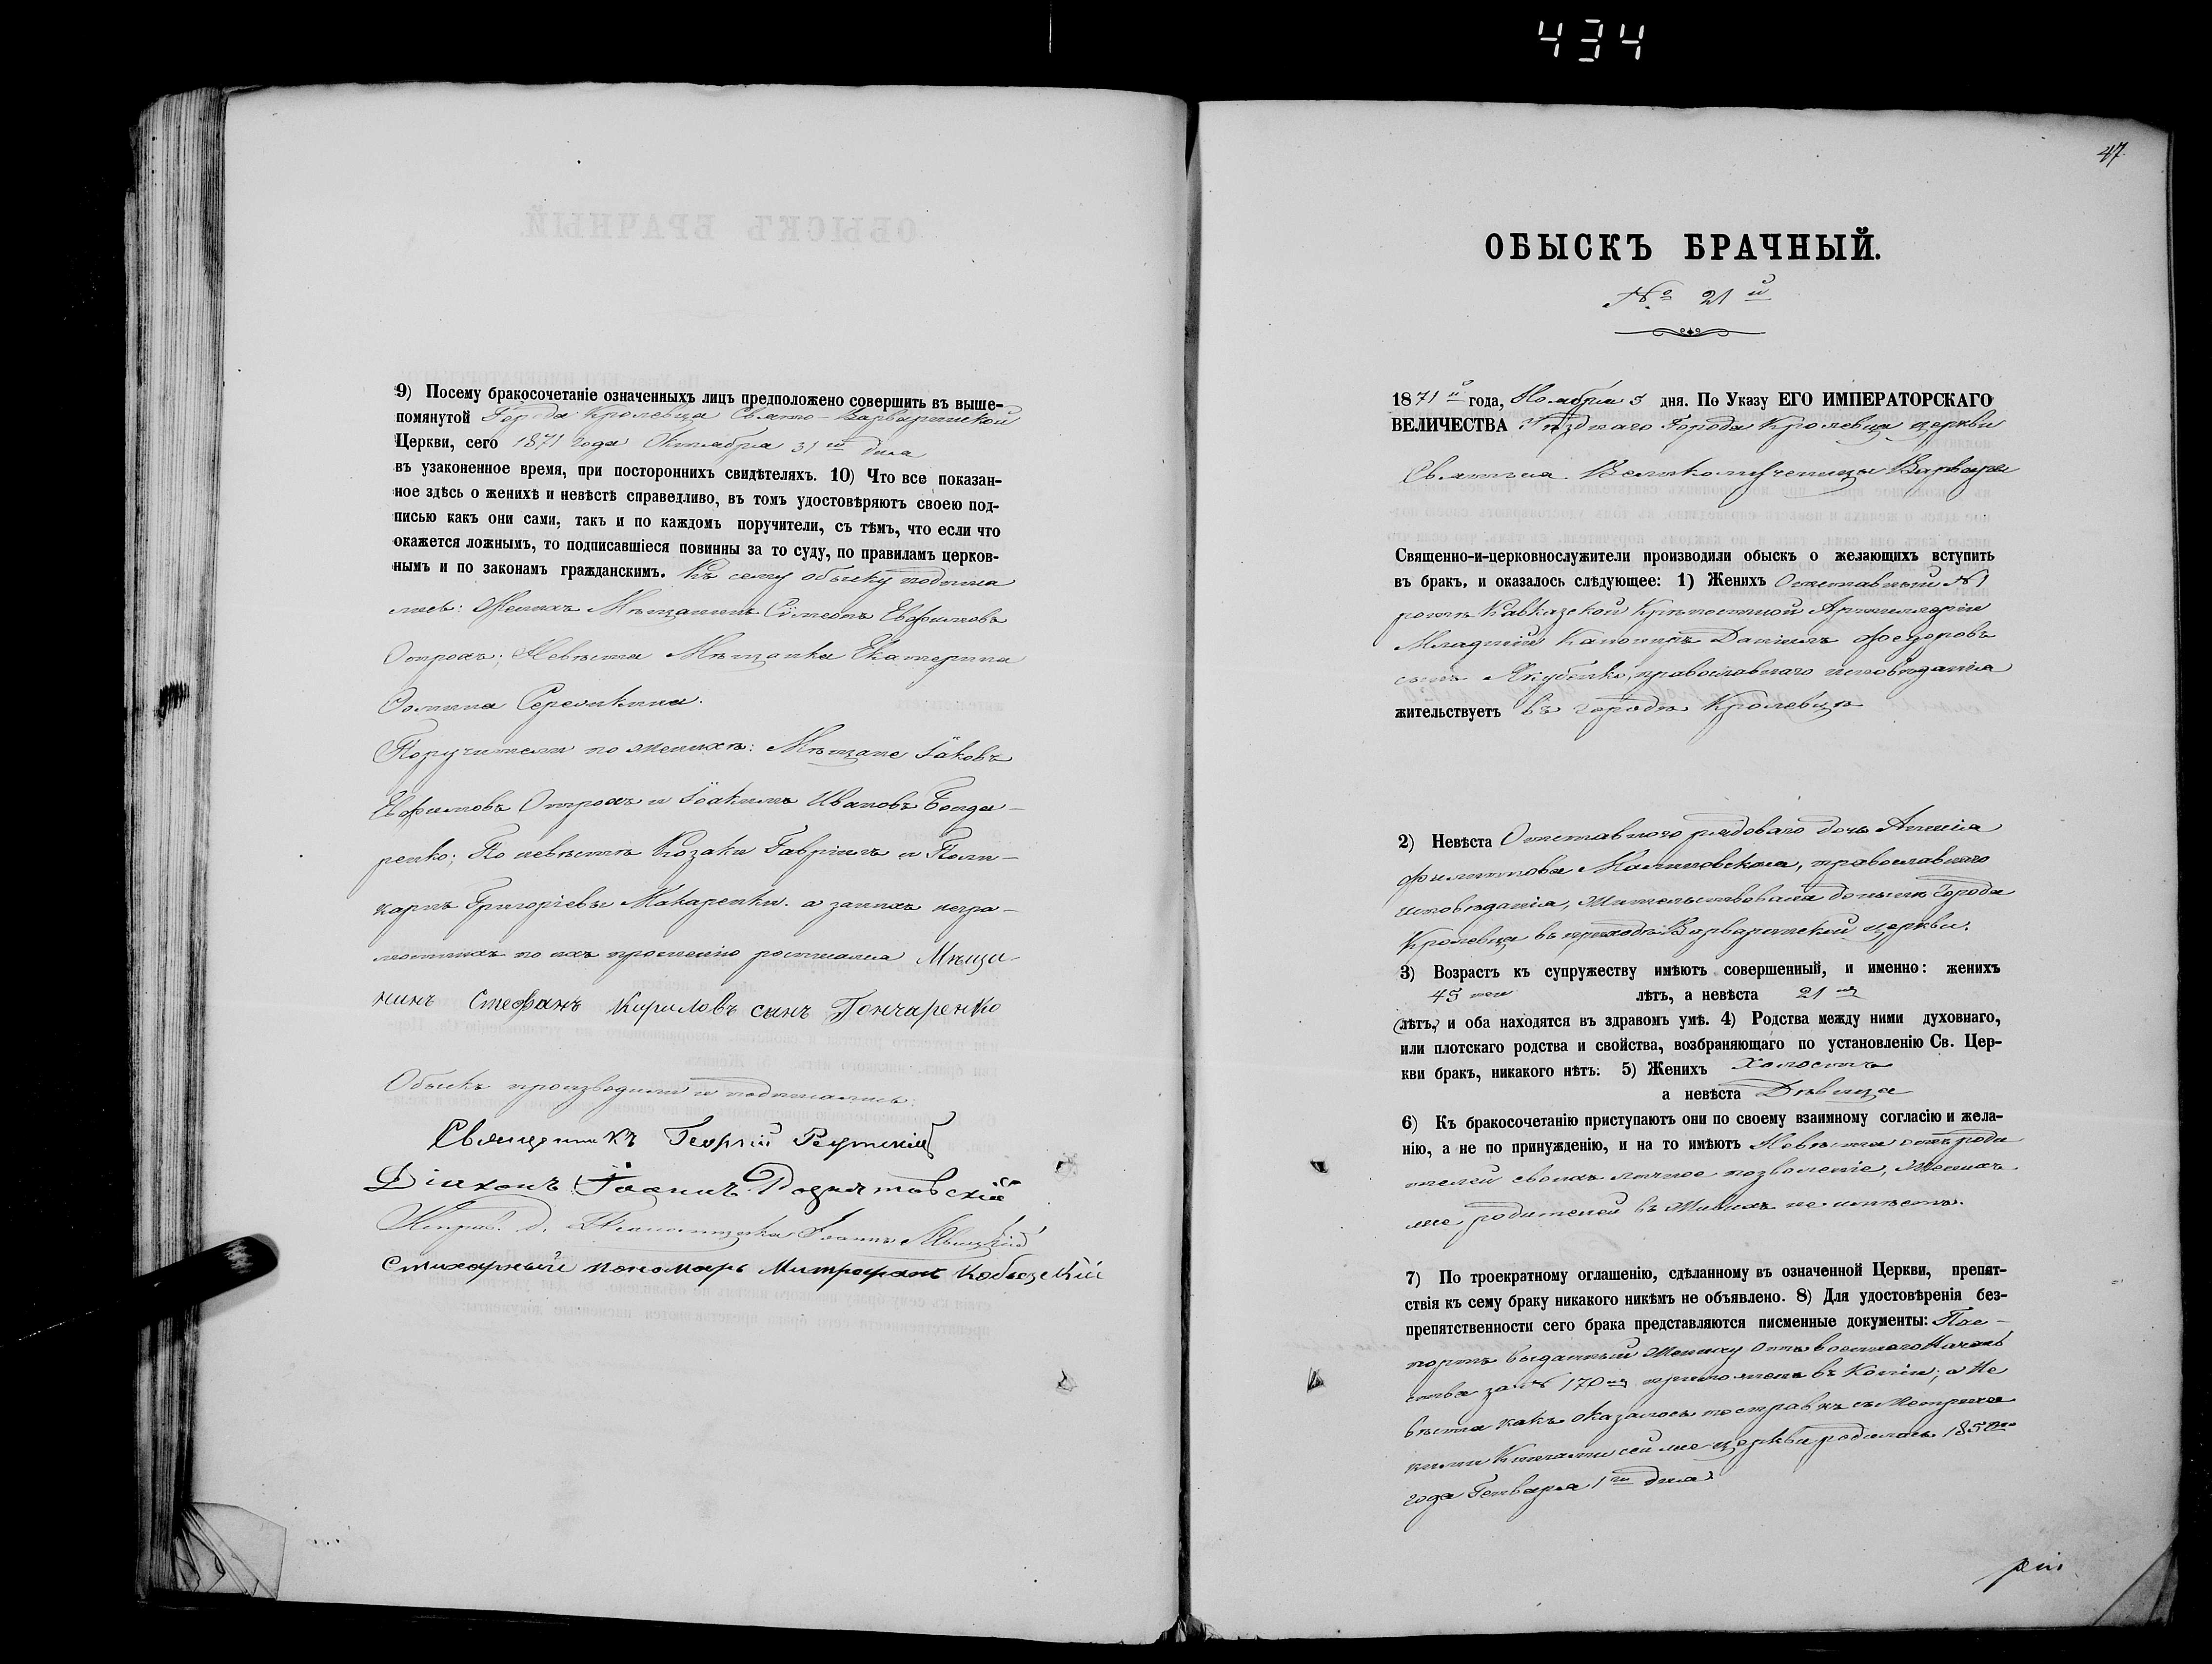 434
9) Посему бракосочетаніе означенныхъ лицъ предположено совершить въ выше-
помянутой Города Кролевца Свято-Варваринской
Церкви, сего 1871 года Октября 31 го дня
въ узаконенное время, при постороннихъ свидѣтеляхъ. 10) Что все показан-
ное здѣсь о женихѣ и невѣстѣ справедливо, въ томъ удостовѣряютъ своею под-
писью какъ они сами, такъ и по каждомъ поручители, съ тѣмъ, что если что
окажется ложнымъ, то подписавшіеся повинны за то суду, по правиламъ церков-
нымъ и по законамъ гражданскимъ. Къ сему обыску подписа
лись: Женихъ Мѣщанинъ Сѵмеонъ Евфимовъ
Отрохъ; Невѣста Мѣщанка Екатерина
Фомина
Поручители по женихѣ: Мѣщане Іаковъ
Евфимовъ Отрохъ и Іоакимъ Ивановъ Бонда-
ренко; По невѣстѣ Козаки Гавріилъ и Поли-
карпъ Григоріевы Макаренки. а за нихъ негра-
мотныхъ по ихъ прошенію росписался Мѣща-
нинъ Стефанъ Кириловъ сынъ Гончаренко
Обыскъ производили и подписались:
Священникъ Георгій
Діаконъ Іоаннъ
Исправ. д. Псаломщика Іоаннъ
Стихарный пономарь Митрофанъ
47.
ОБЫСКЪ БРАЧНЫЙ.
№ 21 й
1871 й года, Ноября 5 дня. По Указу ЕГО ИМПЕРАТОРСКАГО
ВЕЛИЧЕСТВА Уѣзднаго Города Кролевца церкви
Святыя Великомученицы Варвары
Священно-и-церковнослужители производили обыскъ о желающихъ вступить
въ бракъ, и оказалось слѣдующее: 1) Женихъ Отставный №1
роты Кавказской Крѣпостной Артиллеріи
Младшій Канониръ Даніилъ Федоровъ
сынъ Якубенко, православнаго исповѣданія
жительствуетъ въ городѣ Кролевцѣ
2) Невѣста Отставного рядоваго дочь Анисія
Филиппова Малиновская, православнаго
исповѣданія, жительствовала донынѣ Города
Кролевца въ приходѣ Варваринской церкви.
3) Возрастъ къ супружеству имѣютъ совершенный, и именно: женихъ
45 ти лѣтъ, а невѣста 21 го
лѣтъ, и оба находятся въ здравомъ умѣ. 4) Родства между ними духовнаго,
или плотскаго родства и свойства, возбраняющаго по установленію Св. Цер-
кви бракъ, никакого нѣтъ. 5) Женихъ Холостъ
а невѣста Дѣвица
6) Къ бракосочетанію приступаютъ они по своему взаимному согласію и жела-
нію, а не по принужденію, и на то имѣютъ Невѣста отъ роди
телей своихъ личное позволеніе, Женихъ
же родителей въ живыхъ не имѣетъ.
7) По троекратному оглашенію, сдѣланному въ означенной Церкви, препят-
ствія къ сему браку никакого никѣмъ не объявлено. 8) Для удостовѣренія без-
препятственности сего брака представляются писменные документы: Пас-
портъ выданный Жениху отъ военнаго Началь
ства за № 170 мъ приложенъ въ Копіи; а Не
вѣста какъ оказалось по справкѣ съ Метричес
кими Книгами сей же церкви родилась
года Генваря 1 го дня.